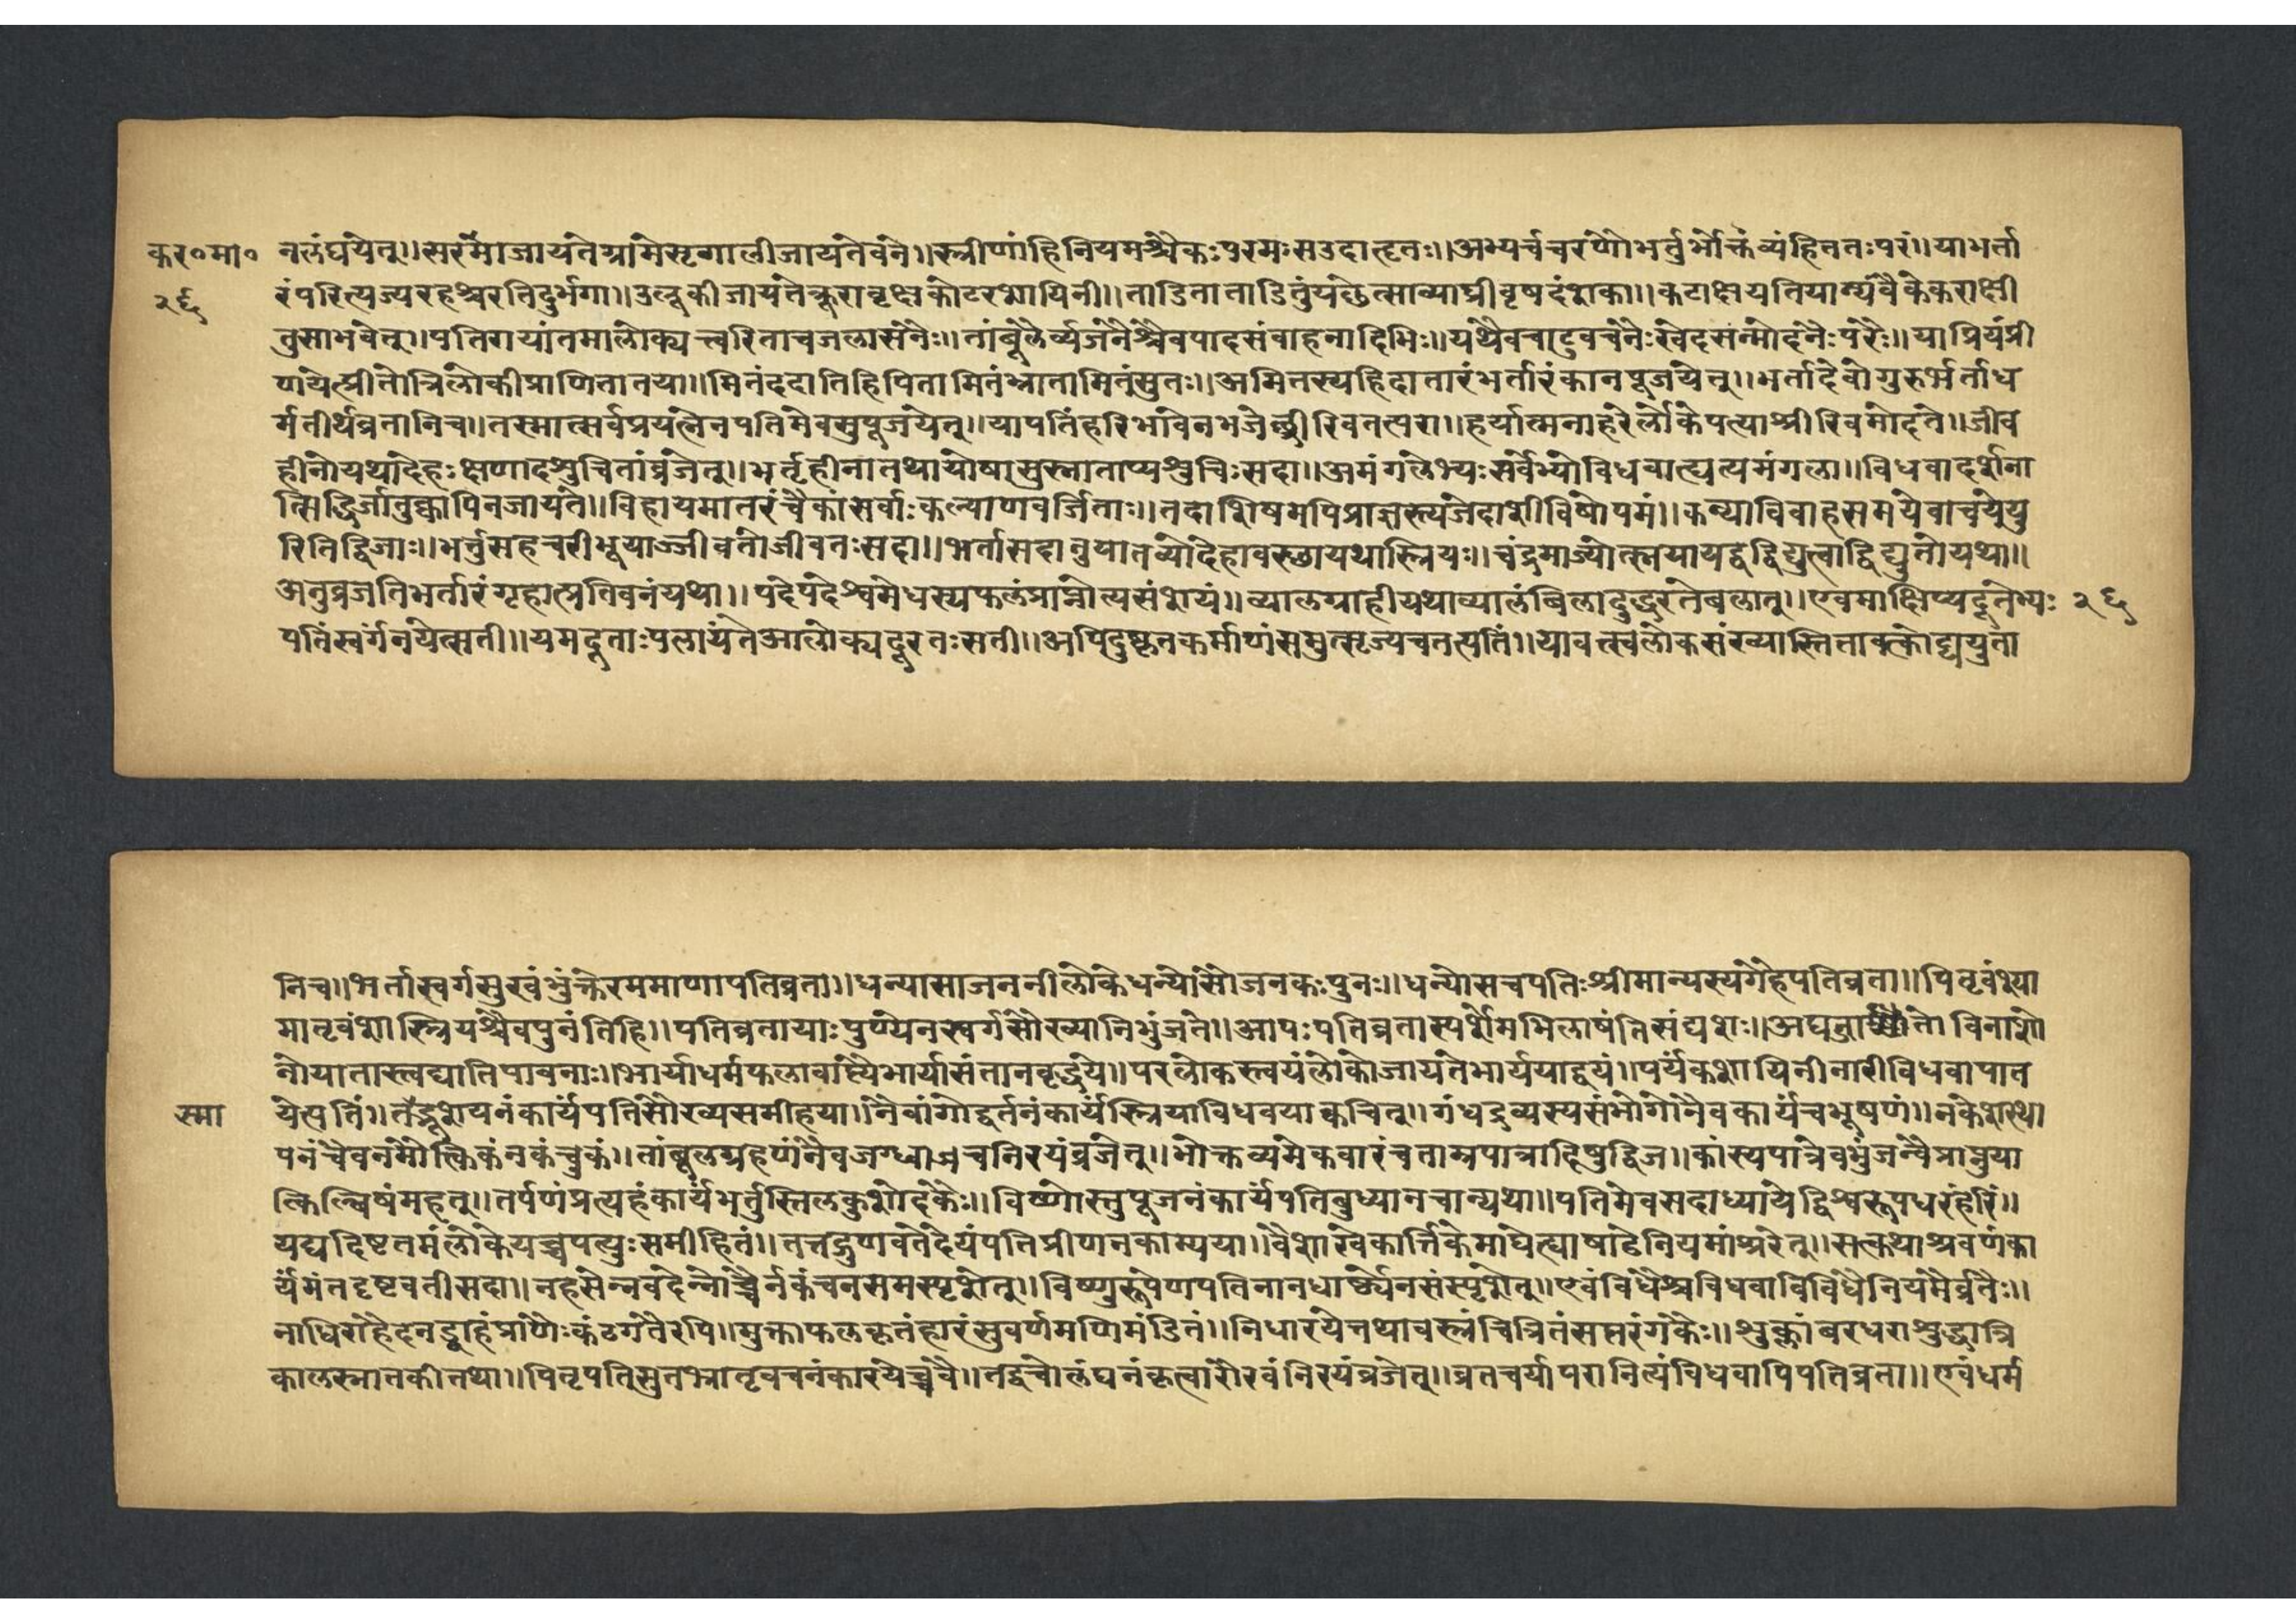 कर॰मा॰ नलंघयेत्।।सरमाजायतेग्रामेसृगालीजायतेवने।।स्त्रीणांहिनियमश्चैकःपरमःसउदाहृतः।।अभ्यर्च्यचरणौभर्त्तुर्भोक्तव्यंहिततःपरं।।याभर्ता
२६ रंपरित्यज्यरहश्चरतिदुर्भगा।।उलूकीजायतेक्रूरावृक्षकोटरशायिनी।।ताडिताताडितुंयछेत्साव्याघ्रीवृषदंशका।।कटाक्षयतियाम्यंवैकेकराक्षी
तुसाभवेत्।।पतिरायांतमालोक्यत्वरिताचजलासनैः।।तांबूलैर्व्यजनैश्चैवपादसंवाहनादिभिः।।यथैवचाटुवचनैःखेदसंन्मोदनैःपरैः।।याप्रियंप्री
णयेत्प्रीतोत्रिलोकीप्राणितातया।।मितंददातिहिपितामितंभ्रातामितंसुतः।।अमितस्यहिदातारंभर्तारंकानपूजयेत्।।भर्तादेवोगुरुर्भर्ताध
र्मतीर्थव्रतानिच।।तस्मात्सर्वप्रयत्नेनपतिमेवसुपूजयेत्।।यापतिंहरिभावेनभजेच्छ्रीरिवतत्परा।।हर्यात्मनाहरेर्लोकेपत्याश्रीरिवमोदते।।जीव
हीनोयथादेहःक्षणादशुचितांव्रजेत्।।भर्तृहीनातथायोषासुस्नाताप्यशुचिःसदा।।अमंगलेभ्यःसर्वेभ्योविधवात्यत्यमंगला।।विधवादर्शना
त्सिद्धिर्जातुक्कापिनजायते।।विहायमातरंचैकांसर्वाःकल्याणवर्जिताः।।तदाशिषमपिप्राज्ञस्त्यजेदाशीविषोपमं।।कन्याविवाहसमयेवाचयेयु
रितिद्विजाः।।भर्त्तुसहचरीभूयाज्जीवतोजीवतःसदा।।भर्तासदानुयातव्योदेहावस्छायथास्त्रियः।।चंद्रमाज्योत्स्नयायद्वद्विद्युत्वाद्विद्युतोयथा।।
अनुव्रजतिभर्तारंगृहात्प्रतिवनंयथा।।पदेपदेश्वमेधस्यफलंप्राप्नोत्यसंशयं।।व्यालग्राहीयथाव्यालंबिलादुद्धरतेबलात्।।एवमाक्षिप्यदूतेभ्यः २६
पतिंस्वर्गंनयेत्सती।।यमदूताःपलायंतेआलोक्यदूरतःसती।।अपिदुष्कृतकर्माणंसमुत्सृज्यचतत्पतिं।।यावत्स्वलोकसंख्यास्तितावत्कोट्ययुता
निच।।भर्तास्वर्गसुखंभुंक्तेरममाणापतिव्रता।।धन्यासाजननीलोकेधन्योसोजनकःपुनः।।धन्योसचपतिःश्रीमान्यस्यगेहेपतिव्रता।।पितृवंश्या
मातृवंशास्त्रियश्चैवपुनंतिहि।।पतिव्रतायाःपुण्येनस्वर्गसौख्यानिभुंजते।।आपःपतिव्रतास्पर्शमभिलाषंतिसंद्यशः।।अघव्रा तो विनाशो
नोयातास्त्वद्यातिपावनाः।।भार्याधर्मफलावाप्त्यैभार्यासंतानवृद्धये।।परलोकस्त्वयंलोकोजायतेभार्ययाद्वयं।।पर्यंकशायिनीनारीविधवापात
स्मा येत्पतिं।।तद्भूशयनंकार्यंपतिसौख्यसमीहया।।नैवांगोद्वर्तनंकार्यंस्त्रियाविधवयाक्वचित्।।गंधद्रव्यस्यसंभोगोनैवकार्यंचभूषणं।।नकेशस्था
पनंचैवनमौक्तिकंनकंचुकं।।तांबूलग्रहणंनैवजग्ध्वाअचनिरयंव्रजेत्।।भोक्तव्यमेकवारंचताम्रपात्रादिषुद्विज।।कांस्यपात्रेवभुंजन्वैप्राप्नुया
त्किल्बिषंमहत्।।तर्पणंप्रत्यहंकार्यंभर्तुस्तिलकुशोदकैः।।विष्णोस्तुपूजनंकार्यंपतिबुध्यानचान्यथा।।पतिमेवसदाध्यायेद्विश्वरूपधरंहरिं।।
यद्यदिष्टतमंलोकेयच्चपत्युःसमीहितं।।तत्तद्गुणवतेदेयंपतिप्रीणनकाम्यया।।वैशाखेकार्त्तिकेमाघेत्वाषाढेनियमांश्चरेत्।।सत्कथाश्रवणंका
र्यंमंतदृष्टवतीसदा।।नहसेन्नवदेन्नोच्चैर्नकंचनसमस्पृशेत्।।विष्णुरूपेणपतिनानधार्ष्ट्येनसंस्पृशेत्।।एवंविधैश्चविधवाविविधैनियमैर्व्रतैः।।
नाधिरोहेदनड्वाहंप्राणैःकंठगतैरपि।।मुक्ताफलकृतंहारंसुवर्णमणिमंडितं।।निधारयेत्तथावस्त्रंचित्रितंसप्तरंगकैः।।शुक्लांबरधराशुद्धात्रि
कालस्नानकीतथा।।पितृपतिसुतभ्रातृवचनंकारयेच्चवै।।तद्विचोलंघनंकृत्वारौरवंनिरयंव्रजेत्।।व्रतचर्यापरानित्यंविधवापिपतिव्रता।।एवंधर्म